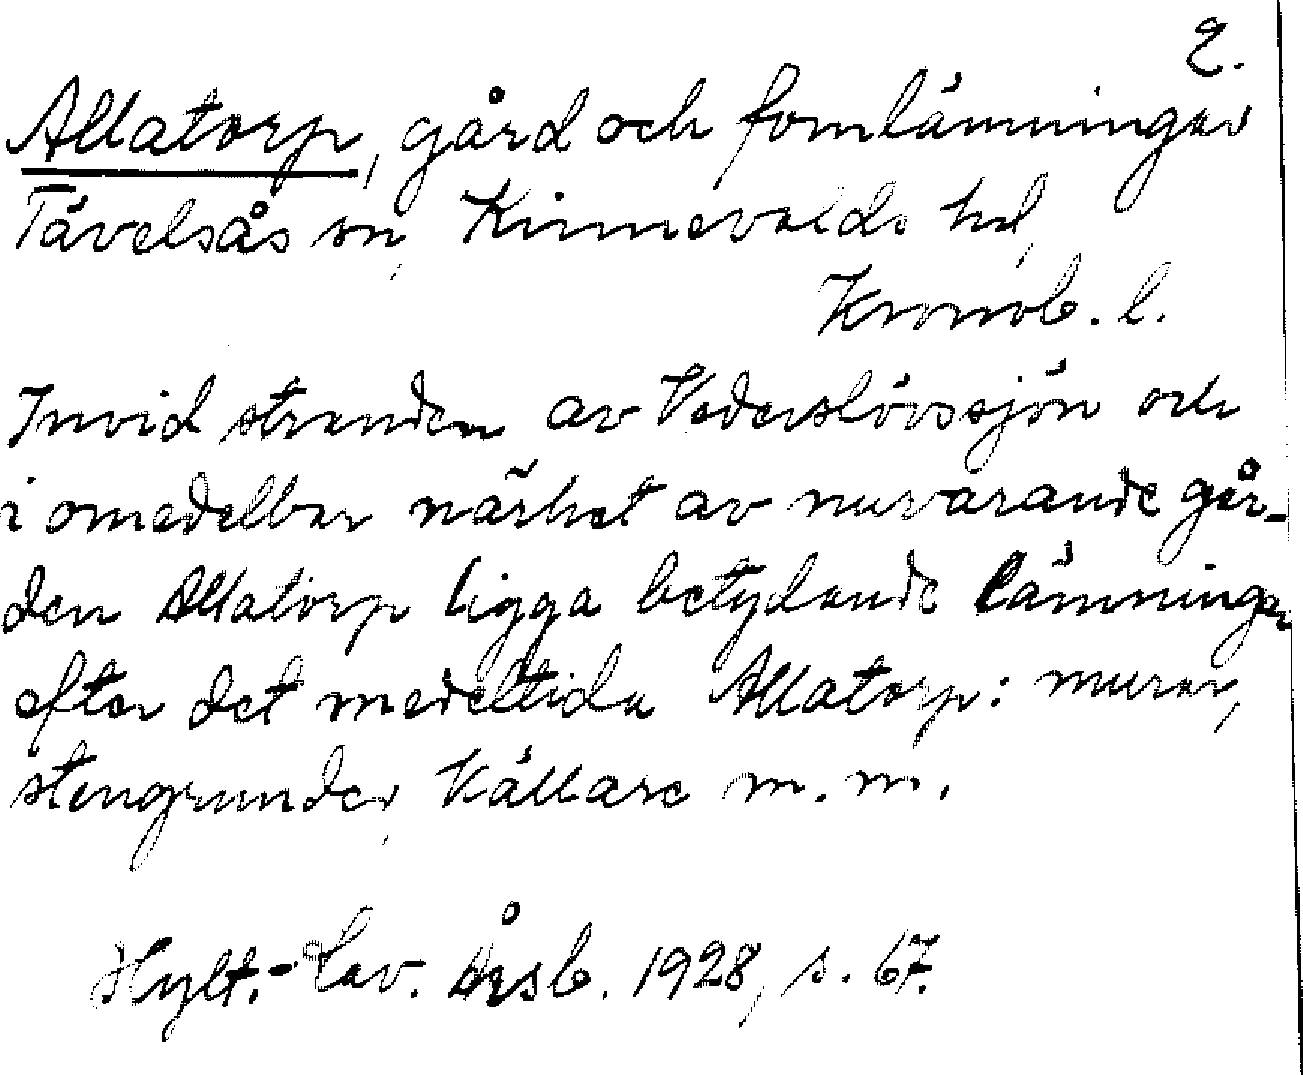 2.
Allatorp, gård och fornlämningar
Tävelsås sn, Kinnevalds hd,
Kronob. l.
Invid stranden av Vederslövssjön och
i omedelbar närhet av nuvarande går-
den Allatorp ligga betydande lämningar
efter det medeltida Allatorp: murar,
stengrunder, källare m. m.
Hylt.-Cav. Årsb. 1928, s. 67.